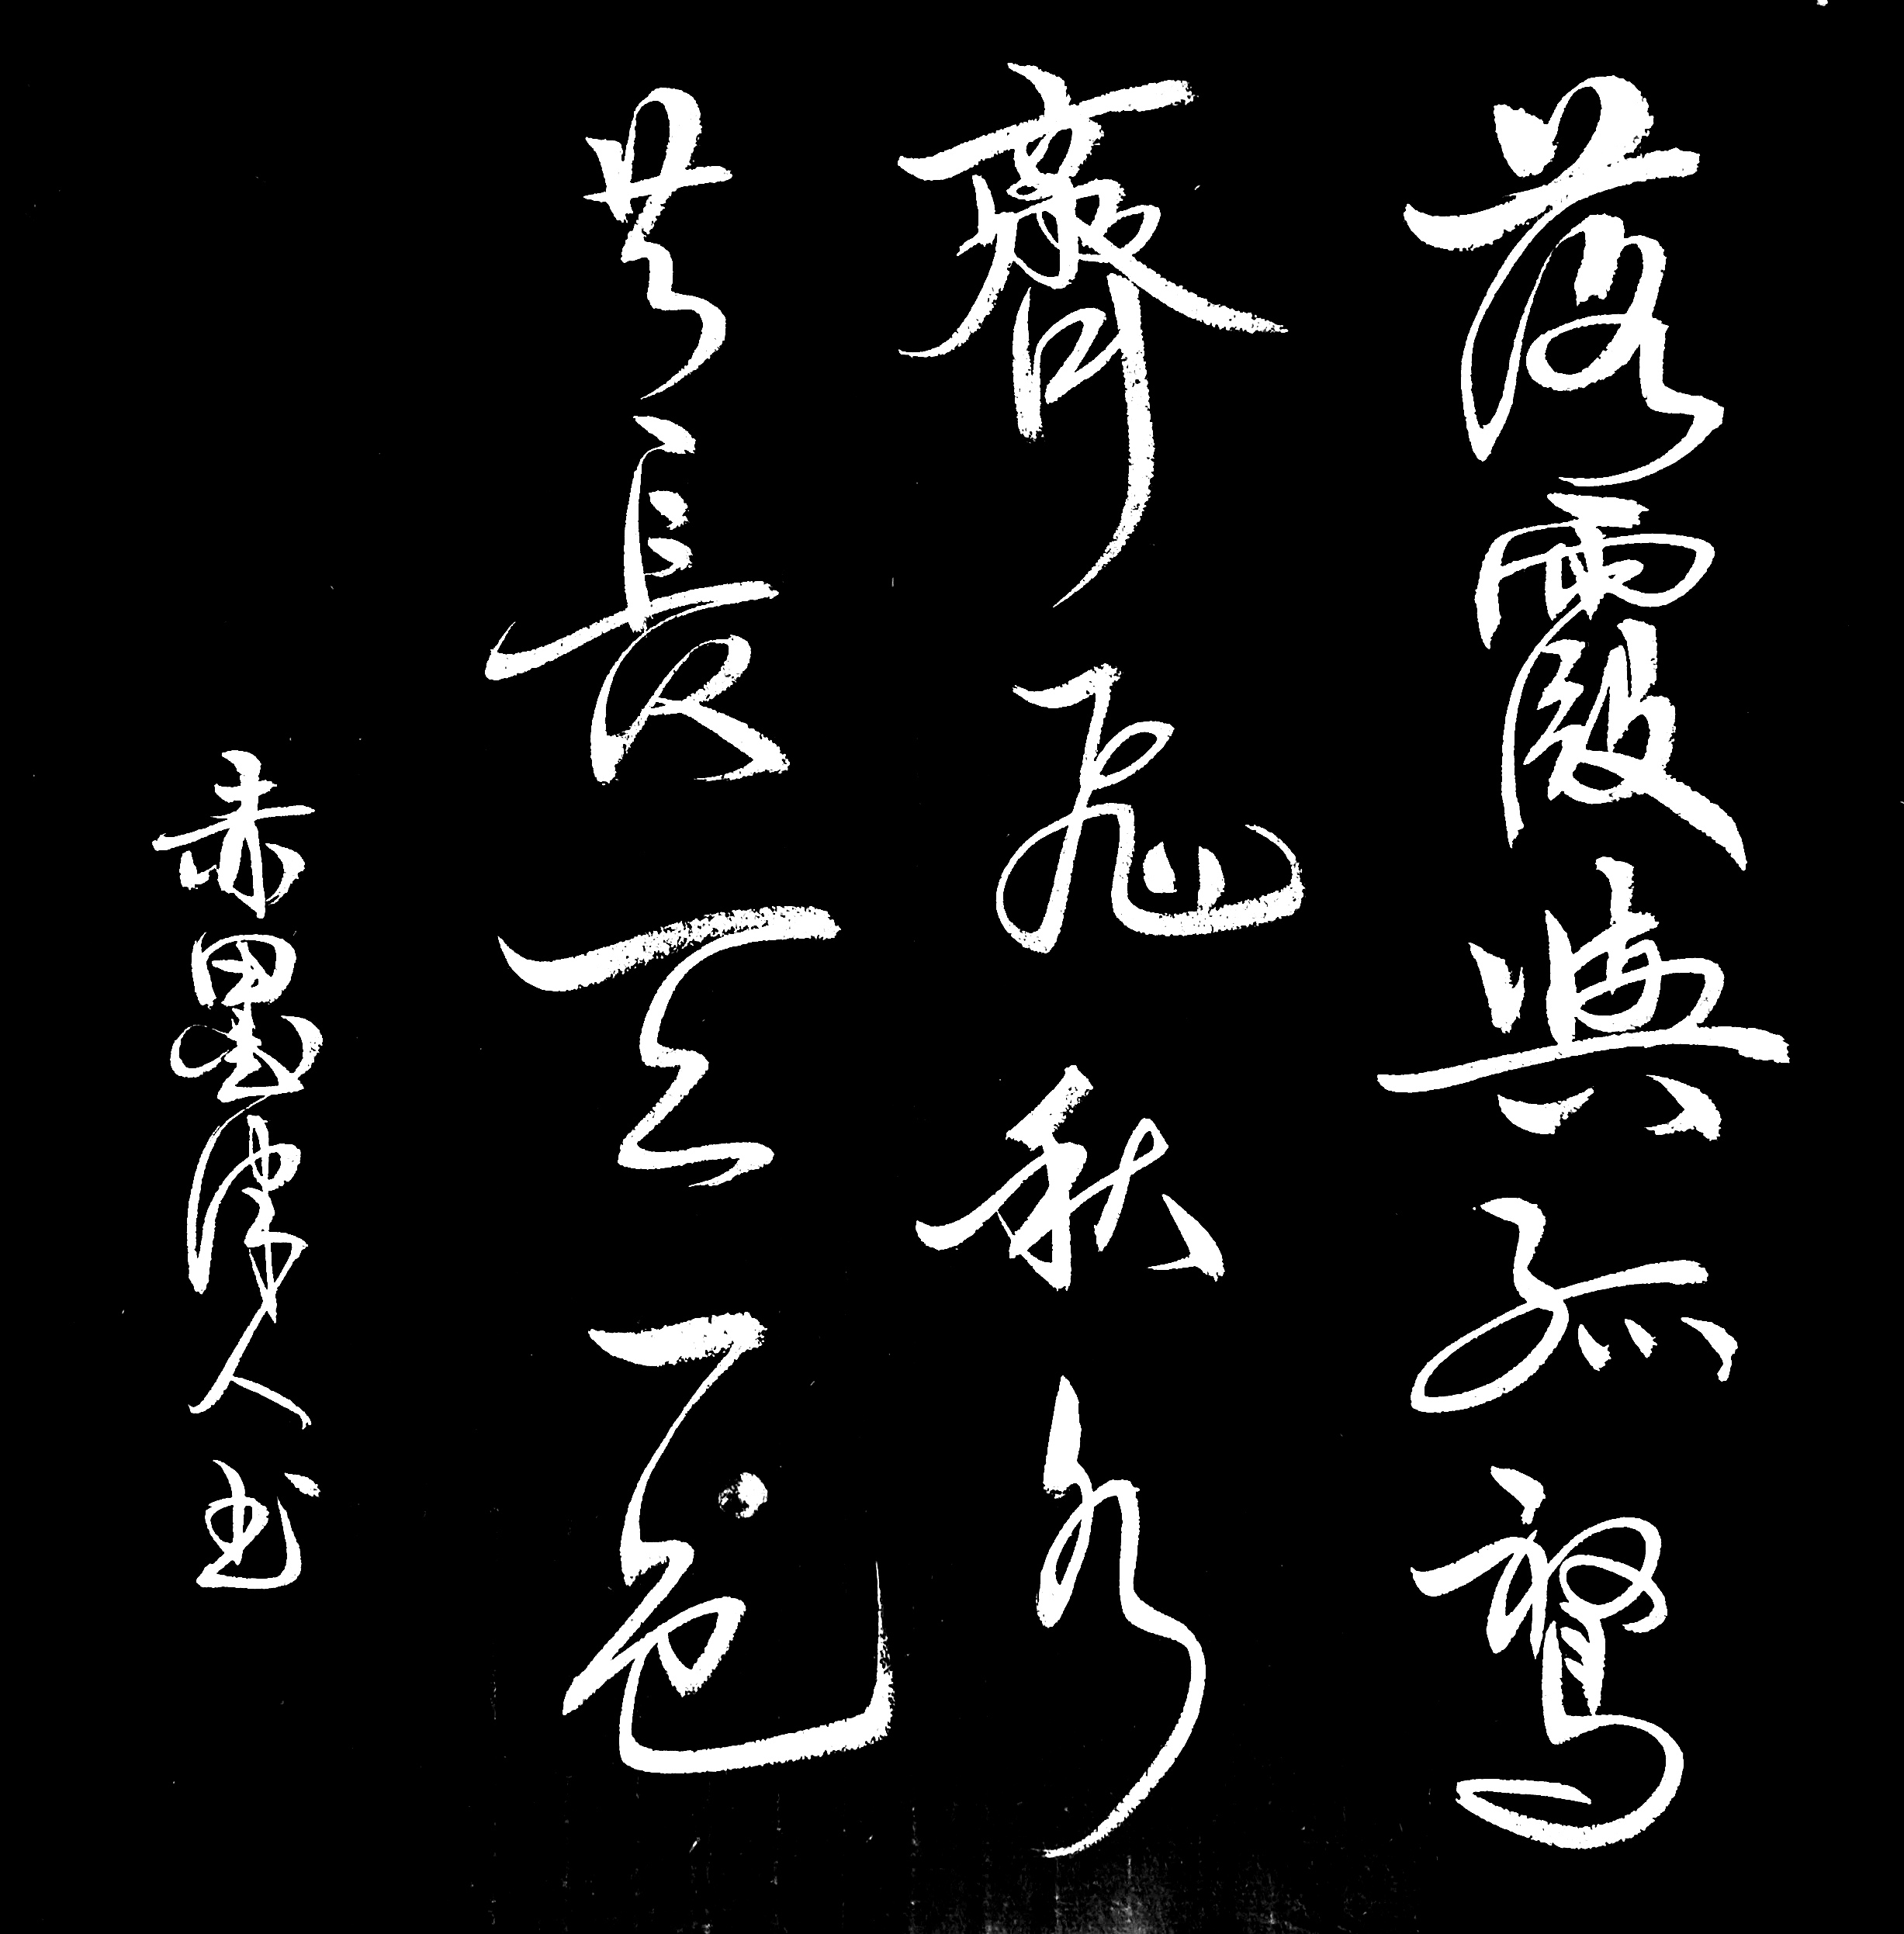 落霞與孤鶩
齊飛秋水
共長天一色
赤墨廔人书